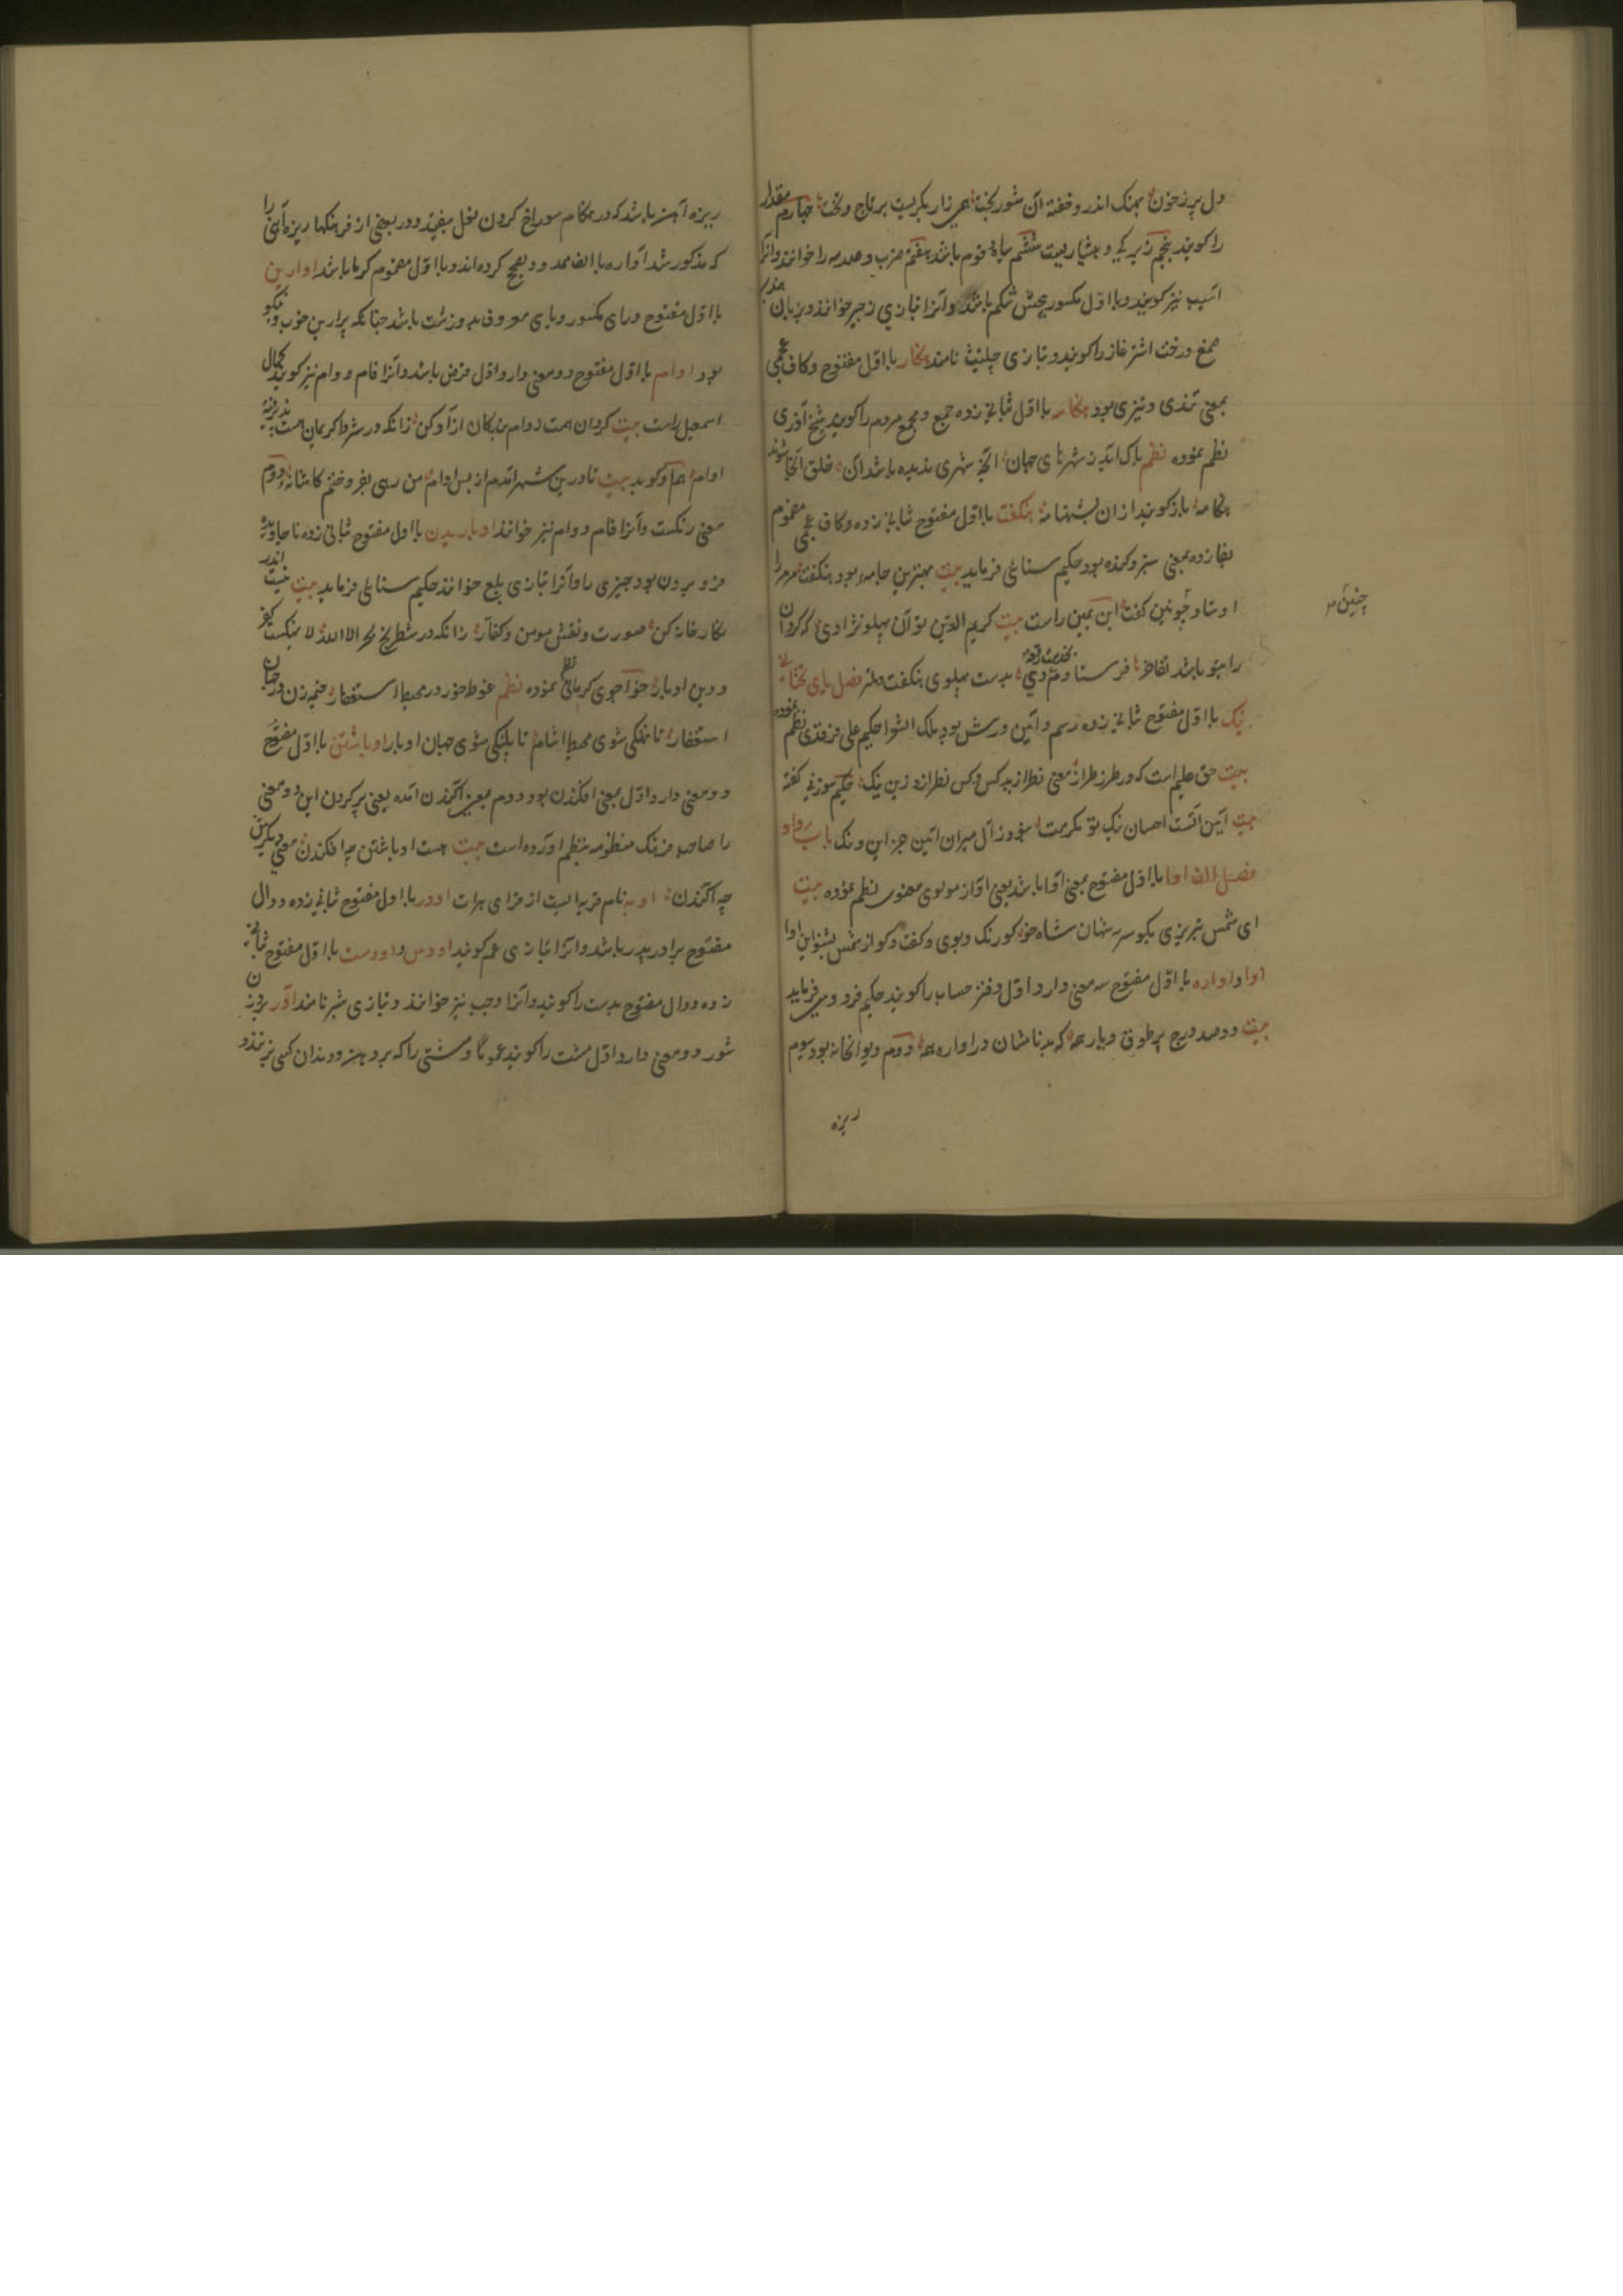 دل پر ز خون بهنک اندر و خفته آن شور بخت همی زار بگریست بر تاج و تخت چهارم مقدار
را کویند پنجم زیرکی و هشیاریست ششم سپاه قوم باشد هفتم ضرب و صدمه را خوانند و آنرا
آسیب نیز کویند و با اول مکسور پیچش شکم باشد و آنرا بتازی زحیر خوانند و بزبان هندی
صمغ درخت اشترغاز را کویند و بتازی حلتیت نامند هنکار با اول مفتوح و کاف عجمی
بمعنی تندی و تیزی بود هنکامه با اول ثانی زده جمع و مجمع مردم را کویند شیخ آذری
نظم نموده نظم پاک آید ز شهرهای جهان آنچه شهری ندیده باشد آن خلق آنجا شوند
هنکامه بازکویند از ان بشهنامه هنکفت با اول مفتوح ثانی زده و کاف عجمی مضموم
بفا زده بمعنی سبز و کنده بود حکیم سنائی فرماید بیت بهترین جامه بود هنکفت مرمرا
اوستاد چونین کفت ابن یمین راست بیت کریم الدین تو آن پهلو نژادی که کردان
چنین
را بتو باشد تفاخر فرستادم بخدمت رقعه دی بدست پهلوی هنکفت و لنز فصل یای تحتانی
ینک با اول مفتوح ثانی زده رسم و آئین و روش بود ملک الشعرا حکیم علی فرقدی نظم نموده
بیت حق علیم است که در طرز طراز معنی نطرازید کس و کس نطرازد زین ینک حکیم سوزنی کفته
بیت آئین آنست احسان ینک تو مکرمت نبود ز آل میران آئین جز این و ینک باب واو
فصل الف اوا با اول مفتوح بمعنی آوا باشد یعنی آواز مولوی معنوی نظم نموده بیت
ای شمس تبریزی بکو سر شهان شاه خو کو رنک و بوی و کفت و کو از شمس بشنو این اوا
اوا و اواره با اول مفتوح سه معنی دارد اول دفتر حساب را کویند حکیم فردوسی فرماید
بیت دوصد درج پر طوق و یاره همه که بد نامشان در اواره همه دوم دیوانخانه بود سیوم
ریزه
ریزه آهن باشد که در هنکام سوراخ کردن نعل بیفتد و در بعضی از فرهنکها ریزه آهنی را
که مذکور شد آواره با الف ممدوده تصحیح کرده اند و با اول مضموم کرمابا باشد اوارین
با اول مفتوح و رای مکسور و یای معروف بد و زشت باشد چنانکه پرارین خوب و نیکو
بود اوام با اول مفتوح دو معنی دارد اول قرض باشد و آنرا فام و وام نیز کویند کمال
اسمعیل راست بیت کردن همت ز وام بندکان آزاد کن زانکه در شرط کریمان هست پذیرفته
اوام هم او کوید بیت تا درین شهر آمدم از بس اوام من رهی بفروختم کاشانه دوم
معنی رنکست و آنرا فام و وام نیز خوانند اوباریدن با اول مفتوح ثانی زده نا جاویده
فرو بردن بود چیزی را و آنرا بتازی بلع خوانند حکیم سنائی فرماید بیت نیست اندر
نکارخانه کن صورت و نقش مومن و کفار زانکه در شطرنج بحر الا الله لا نهنکیست کفر
و دین اوبار خواجوی کرمانی نظم نموده نظم غوطه خور در محیط استغفار خیمه زن در جهان
استغفار تا نهنکی شوی محیط آشام تا پلنکی شوی جهان اوبار اوباشتن با اول مفتوح
دو معنی دارد اول بمعنی افکندن بود دوم بمعنی آکندن آمده یعنی پر کردن این دو معنی
را صاحب فرهنک منظومه بنظم آورده است بیت هست اوباشتن چه افکندن معنی دیکرین
چه آکندن اوبه نام قریه ایست از قرای هرات اودر با اول مفتوح ثانی زده و دال
مفتوح برادر پدر باشد و آنرا بتازی عم کویند اودس و اودست با اول مفتوح ثانی
زده و دال مفتوح بدست را کویند و آنرا وجب نیز خوانند و بتازی شبر نامند اور بروزن
شور دو معنی دارد اول مشت را کویند عموما و مشتی را که بر دهن و دندان کسی بزنند و